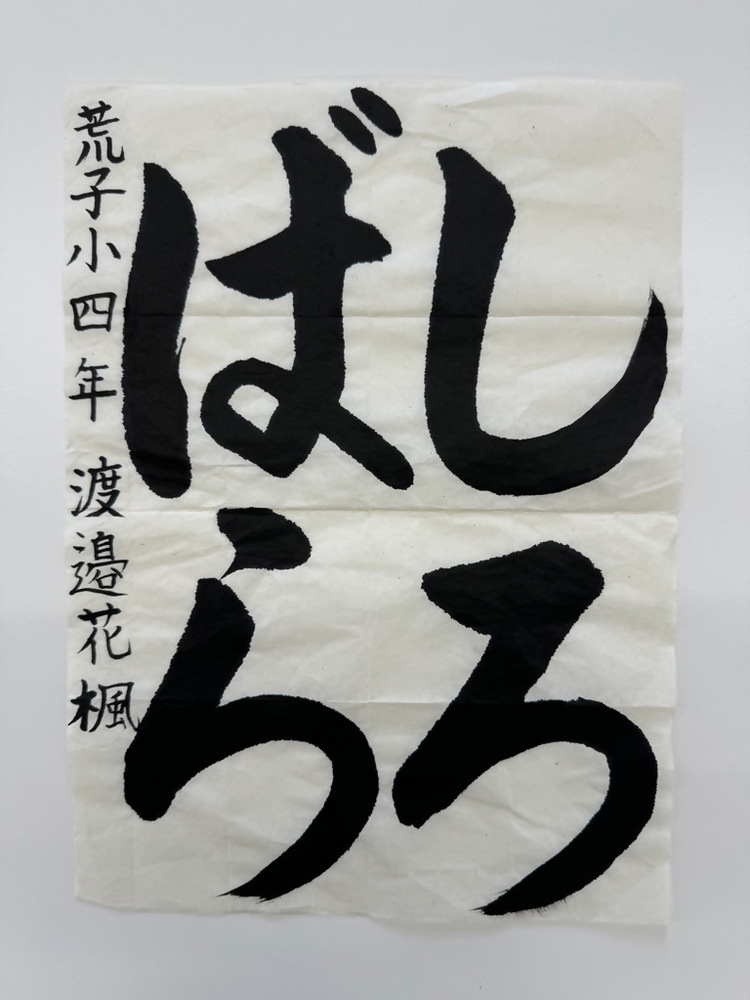 しろ
ばら
荒子小四年 渡邉花楓